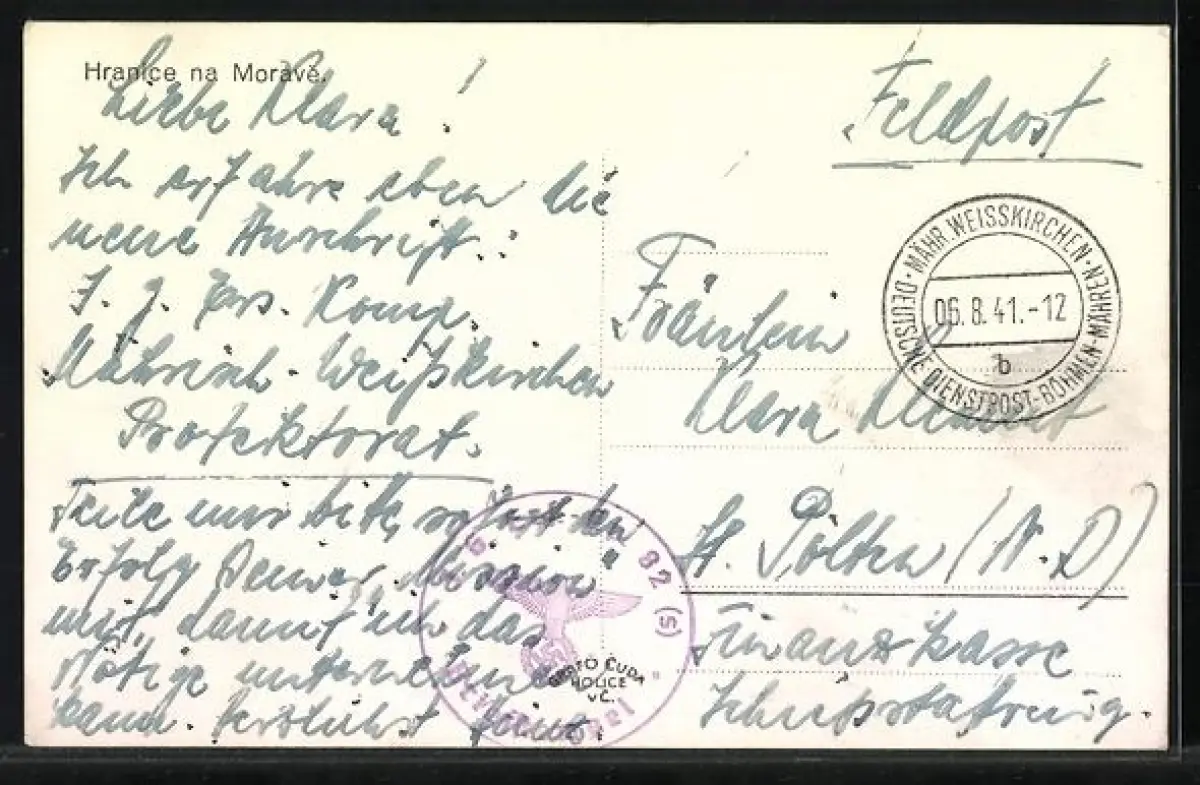 Hranice na Moravě.
Liebe Klara!
Ich erfahre eben die
neue Anschrift:
Ers. Komp.
Mährisch-Weißkirchen
Protektorat.
Teile mir bitte sofort den
Erfolg Deiner „Mission"
mit, damit ich das
Nötige unternehmen
kann. Herzlichst
Feldpost
MÄHR. WEISSKIRCHEN
DEUTSCHE DIENSTPOST-BÖHMEN-MÄHREN
06.8.41.-12
b
Fräulein
Klara
St. Pölten (N.D)
Finanzkasse
FOTO ČUDA
HOLICE
v Č.